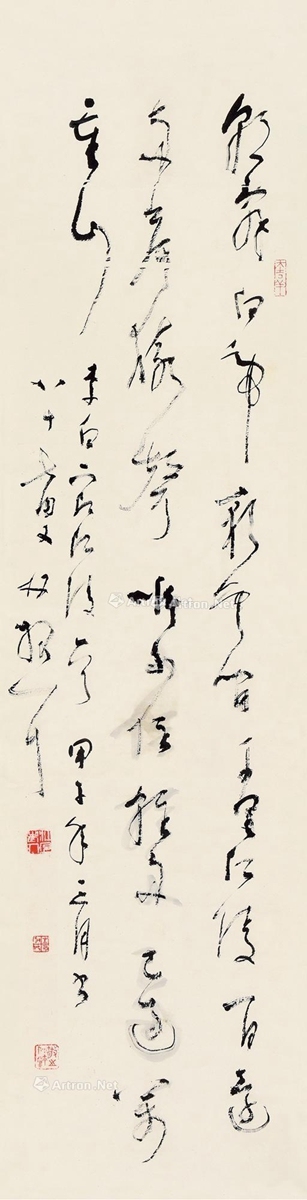 朝辭白帝彩雲間千里江陵一日還
兩岸猿聲啼不住輕舟已過萬
重山
李白下江陵 甲子年三月书
八十七叟林散耳
Artron.Net
Artron.Net